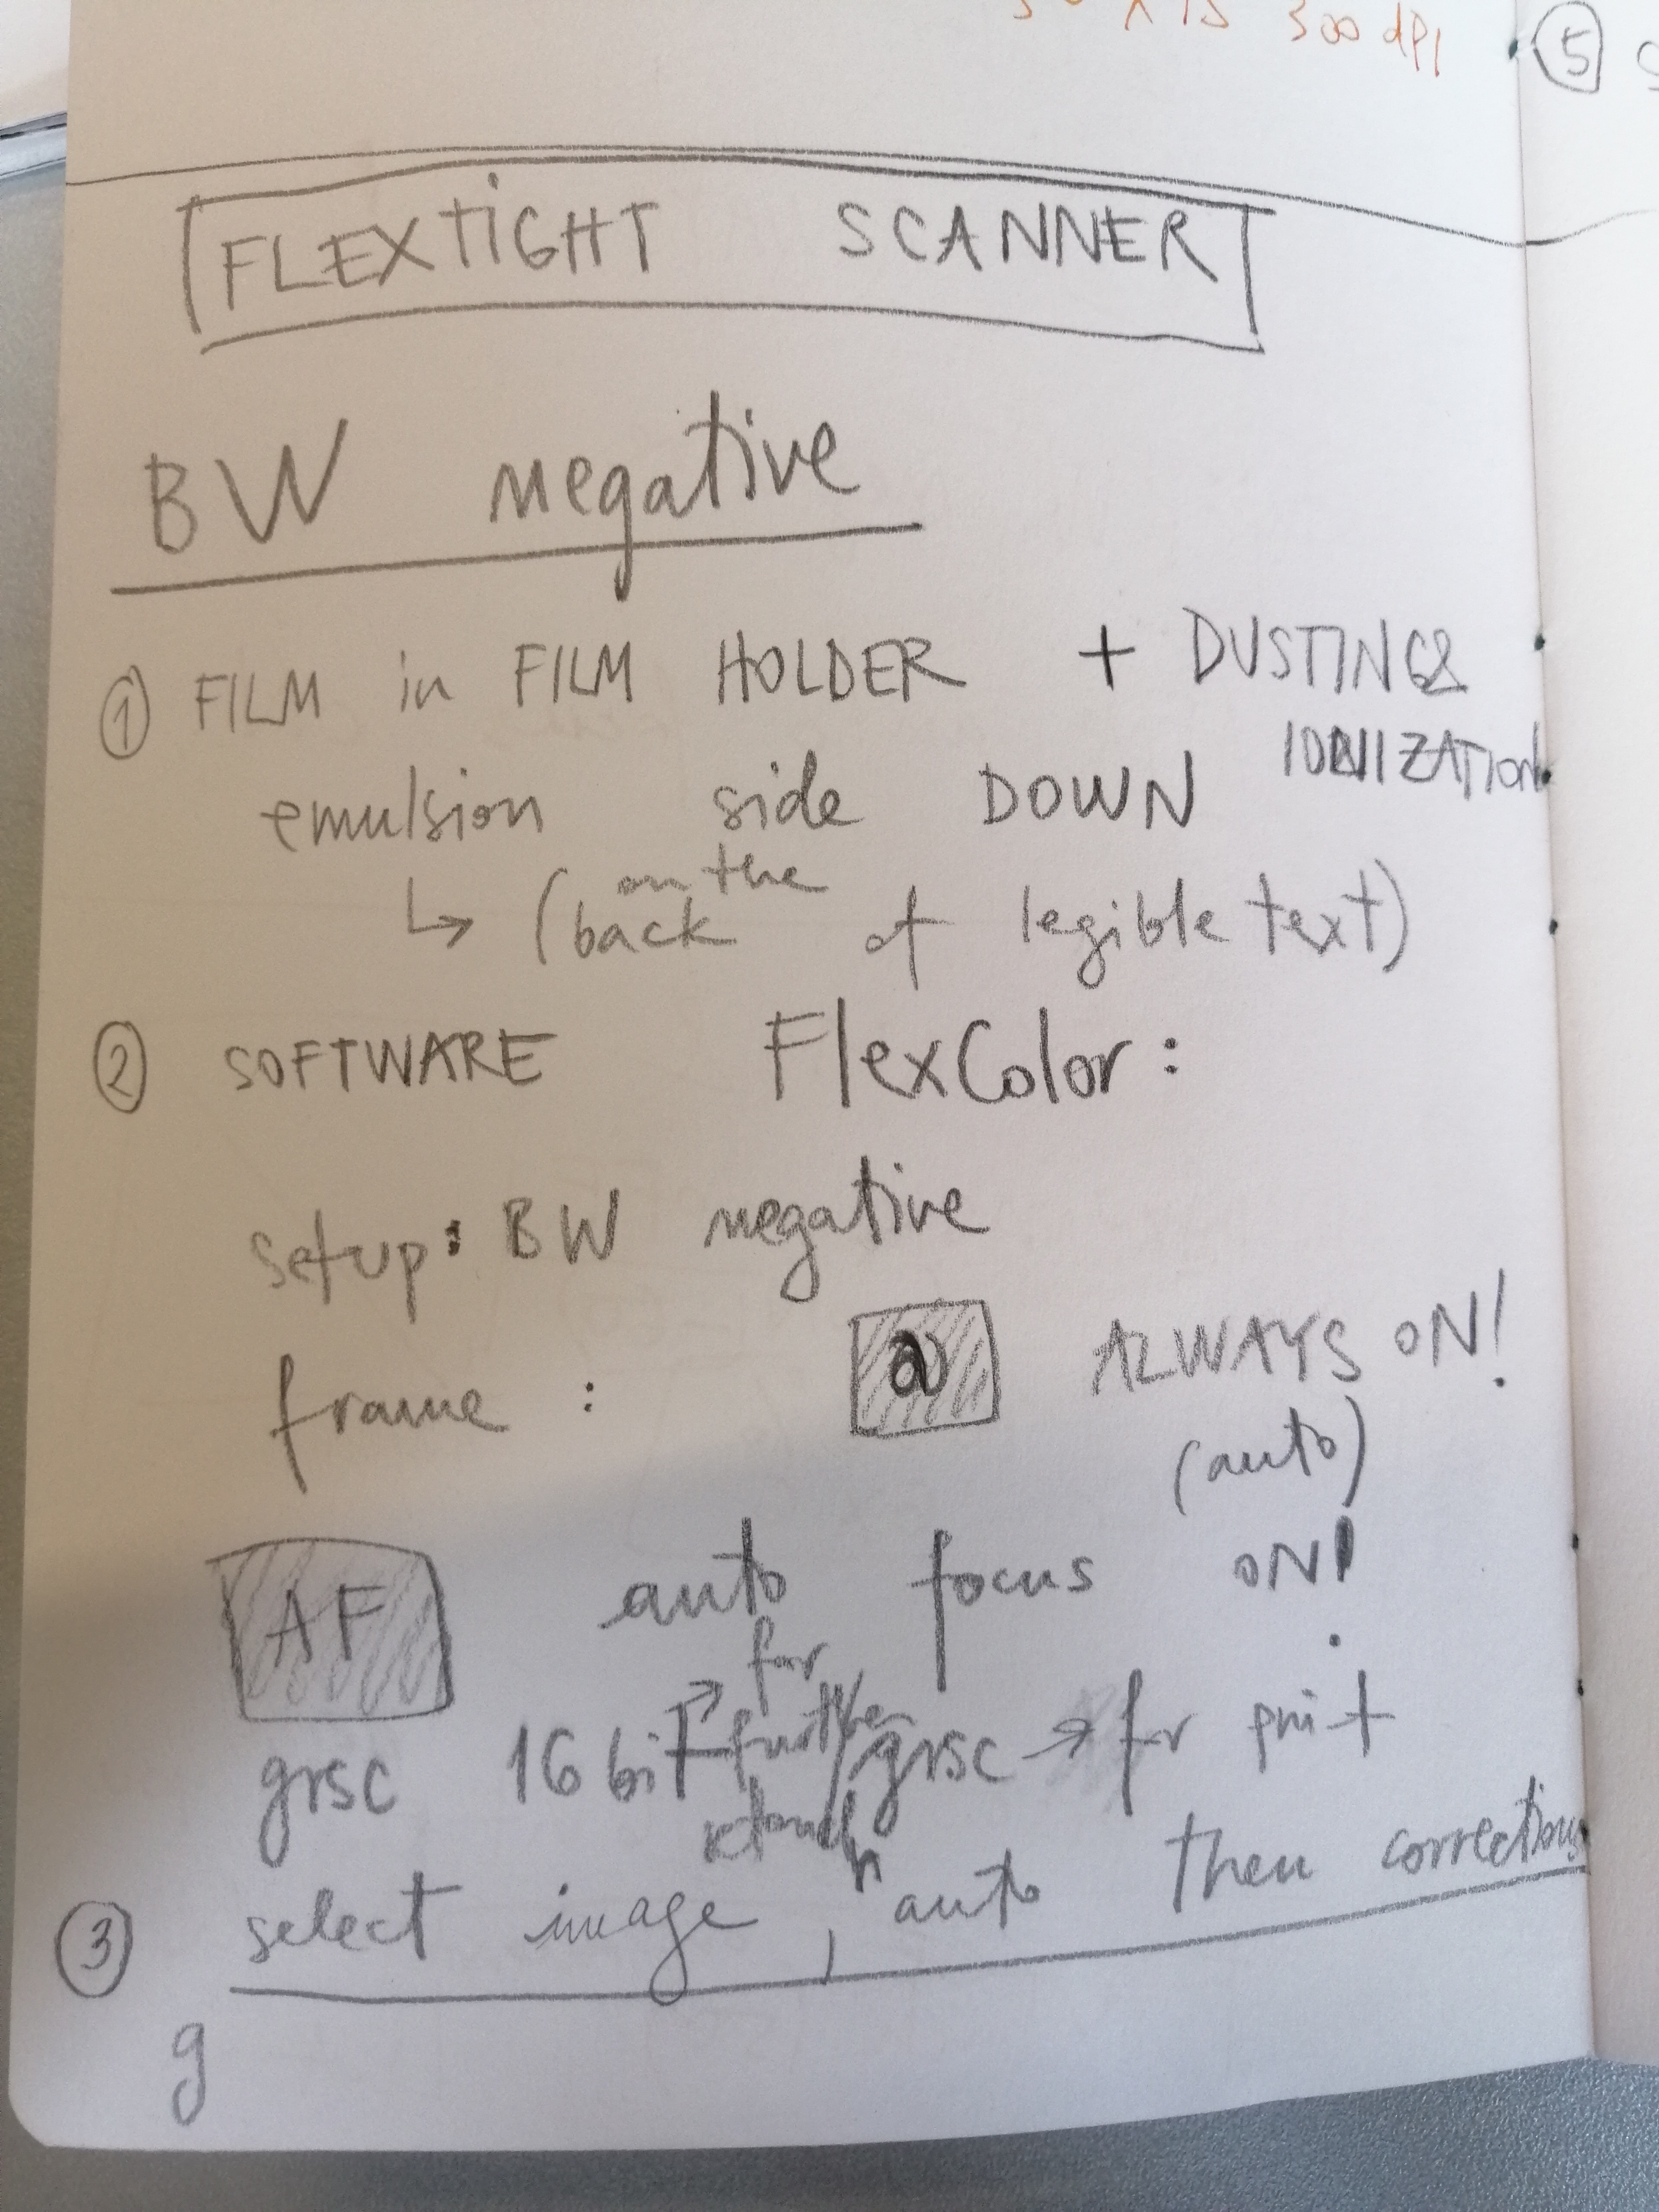 300 dpi
⑤
FLEXTIGHT SCANNER
BW negative
① FILM in FILM HOLDER + DUSTING &
IONIZATION
emulsion side DOWN
↳ (on the back of legible text)
② SOFTWARE FlexColor:
setup: BW negative
frame : a ALWAYS ON!
(auto)
AF auto focus ON!
grsc 16 bit → for further retouch / grsc → for print
③ select image, auto then corrections
g